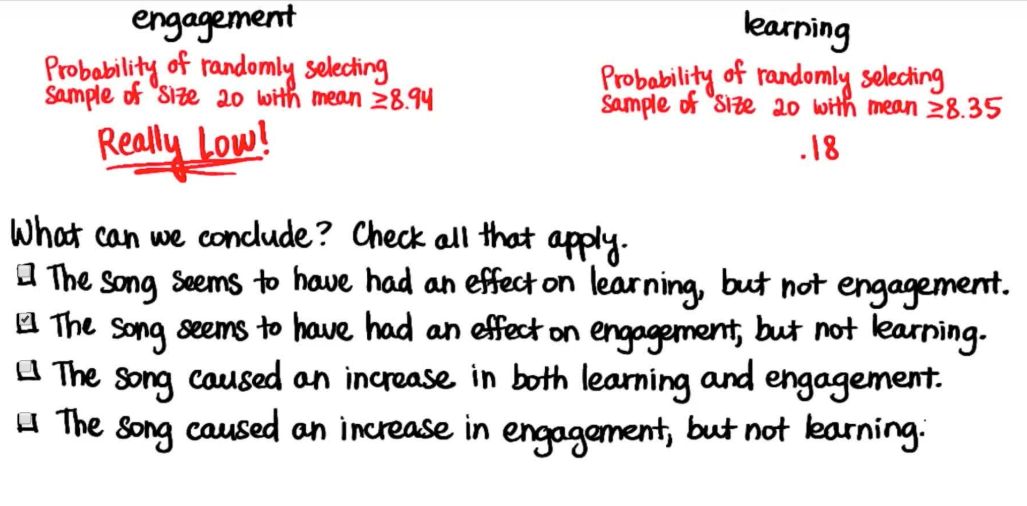 engagement
Probability of randomly selecting
sample of size 20 with mean ≥8.94
Really Low!
learning
Probability of randomly selecting
sample of size 20 with mean ≥8.35
.18
What can we conclude? Check all that apply.
The song seems to have had an effect on learning, but not engagement.
The song seems to have had an effect on engagement, but not learning.
The song caused an increase in both learning and engagement.
The song caused an increase in engagement, but not learning.